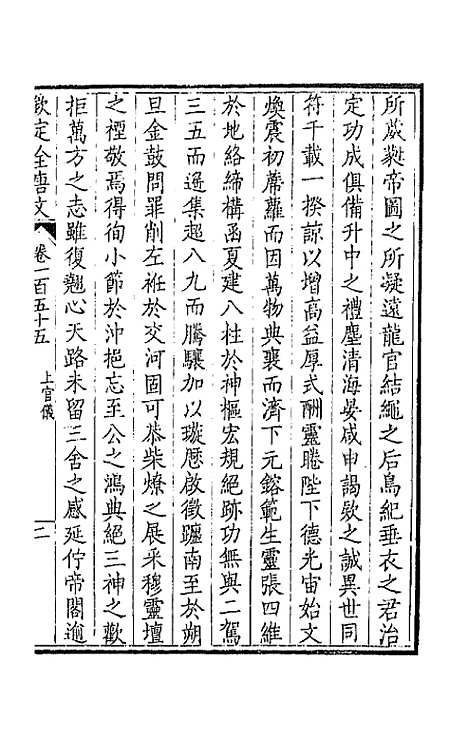 所蕆蕤帝圖之所凝遠龍官結繩之后鳥紀垂衣之君治
定功成俱備升中之禮塵清海晏咸申謁款之誠異世同
符千載一揆諒以增高益厚式酬靈睠陛下德光宙始文
煥震初蓆蘿而因萬物典襄而濟下元鎔範生靈張四維
於地絡締構函夏建八柱於神樞宏規絕跡功無與二駕
三五而遥集超八九而騰驤加以璇歴啟徵躔南至於朔
旦金鼓問罪削左袵於交河固可恭柴燎之展采穆靈壇
之禋敬焉得徇小節於沖挹忘至公之鴻典絕三神之歡
拒萬方之志雖復翹心天路未留三舍之感延佇帝閽逾
欽定全唐文 卷一百五十五 上官儀 二